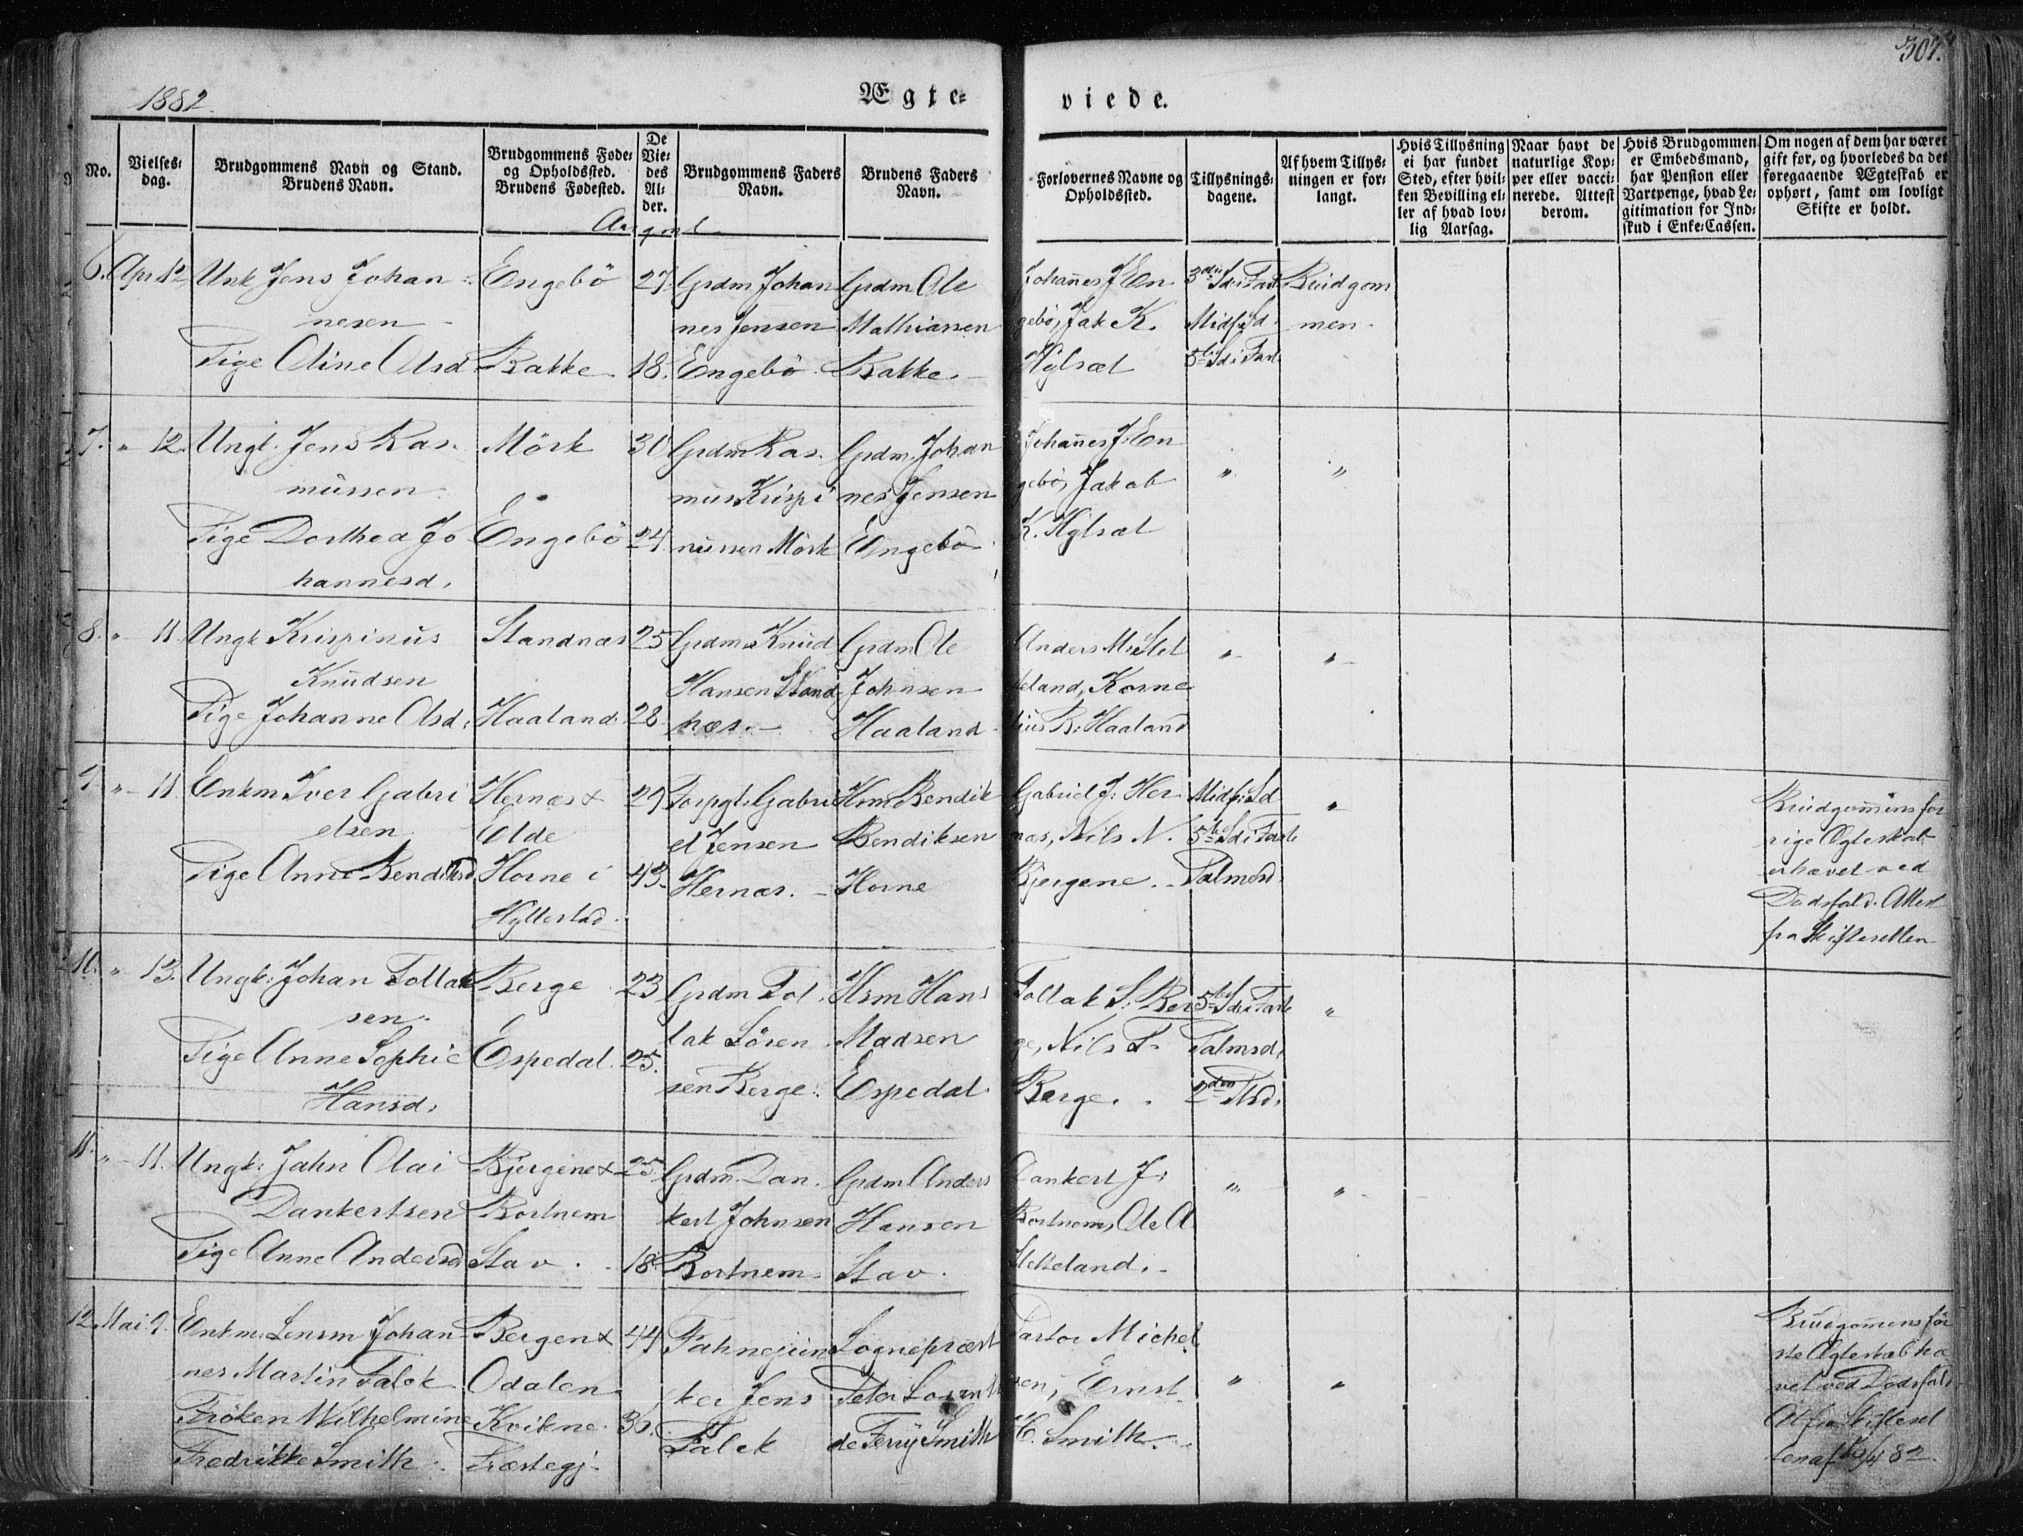 1882.
Ægte-
viede.
307.
No.
Vielses-
dag.
Brudgommens Navn og Stand.
Brudens Navn.
Brudgommens Føde-
og Opholdssted.
Brudens Fødested.
De
Vie-
des
Al-
der.
Brudgommens Faders
Navn.
Brudens Faders
Navn.
Forlovernes Navne og
Opholdssted.
Tillysnings-
dagene.
Af hvem Tillys-
ningen er for-
langt.
Hvis Tillysning
ei har fundet
Sted, efter hvil-
ken Bevilling el-
ler af hvad lov-
lig Aarsag.
Naar havt de
naturlige Kop-
per eller vacci-
nerede. Attest
derom.
Hvis Brudgommen
er Embedsmand,
har Pension eller
Vartpenge, hvad Le-
gitimation for Ind-
skud i Enke-Cassen.
Om nogen af dem har været
gift før, og hvorledes da det
foregaaende Ægteskab er
ophørt, samt om lovligt
Skifte er holdt.
6. Apr. 12
Unk Jens Johan-
nesen
Pige Oline Olsd
Engebö
Bakke
27.
18.
Grdm Johan
nes Jensen
Engebö
Grdm Ole
Mathiassen
Bakke
Johannes J En
gebö, Jak K.
Hylsæt
3die Sdi Faste
Midf. Sd.
5te Sdi Faste
Brudgom
men
7. " 12.
Ungk. Jens Ras-
mussen
Pige Dorthea Jo
hannesd.
Mörk
Engebö
30
24.
Grdm Ras-
mus Krispi
nussen Mörk
Grdm. Johan
nes Jensen
Engebö
Johannes J. En
gebö, Jakob
K. Hylsæt
"
"
8. " 11.
Ungk Krispinus
Knudsen
Pige Johanne Olsd.
Standnæs
Haaland
25
28.
Grdm Knud
Hansen Stand
næs.
Grdm Ole
Johnsen
Haaland
Anders M. Slet
teland, Korne
lius R. Haaland
"
"
9. " 11.
Enkm Iver Gabri
elsen
Pige Anne Bendiksd
Hernæs &
Olde
Horne i
Hyllestad
29
43.
Gabri
el Jensen
Hernæs.
Hsm Bendik
Bendiksen
Horne
Gabriel J. Her
næs, Nils N.
Bjergene.
Midf. Sd
5te Sdi Faste
Palmesd.
"
Brudgommens for
rige Ægteskab
ophævet ved
Dødsfald. Attest
fra Skifteretten
10. " 13.
Ungk. Johan Tollak
sen
Pige Anne Sophie
Hansd.
Berge
Espedal
23
25.
Grdm Tol
lak Sören
sen Berge
Hsm Hans
Madsen
Espedal
Tollak S. Ber
ge, Nils T.
Berge.
5te Sdi Faste
Palmsd.
2den Psd.
"
11. " 11.
Ungk. Jahn Olai
Dankertsen
Pige Anne Andersd
Bjergene &
Bortnem
Stav
25.
18.
Grdm. Dan
kert Johnsen
Bortnem
Grdm Anders
Hansen
Stav
Dankert J.
Bortnem, Ole A
Sletteland.
"
"
12. Mai 9.
Enkm. Lensm Johan
nes Martin Falck
Fröken Wilhelmine
Fredrikke Smith
Bergen &
Odalen
Kvikne
Præstegj.
44
36.
Fahnejun
ker Jens
Falck
Sognepræst
Peter Lorentz
de Ferry Smith
Pastor Michel
sen, Ernst
C. Smith.
"
"
Brudgommens för
ste Ægteskab hæ
vet ved Dødsfald
Att fra Skifteret
ten af 82